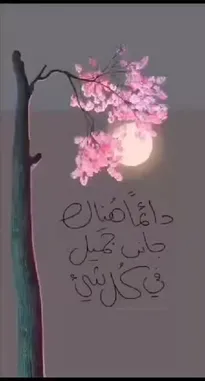 دائمًا هُناك
جانب جميل
في كُل شيئ